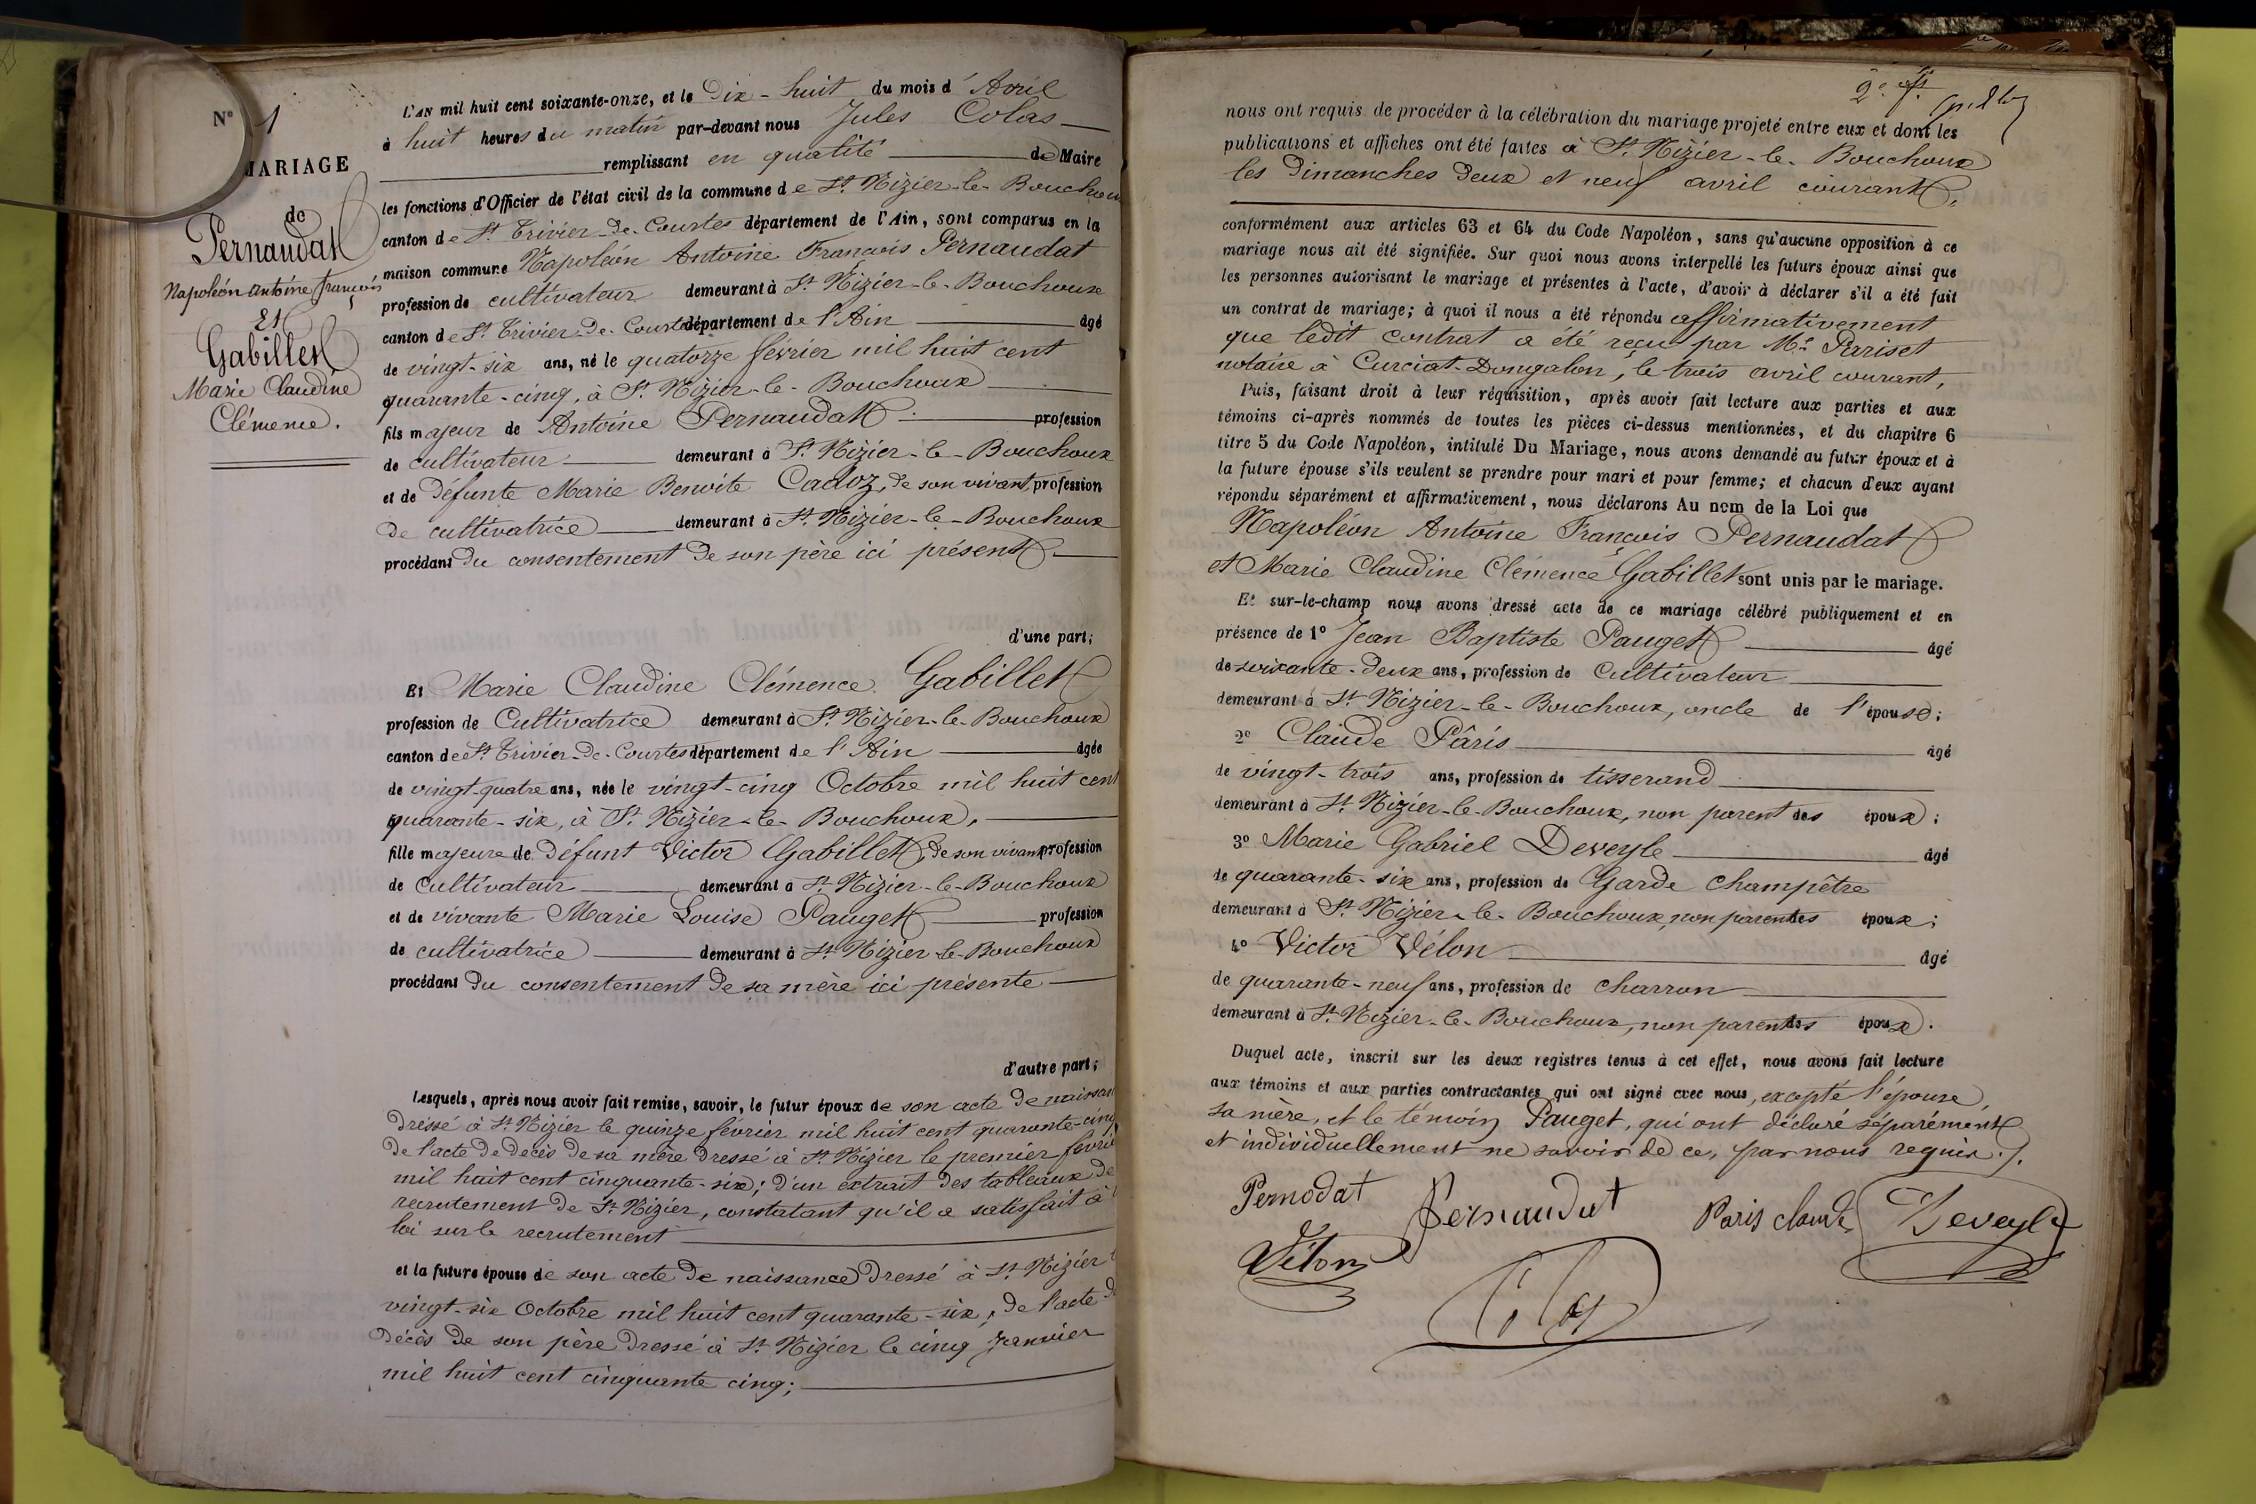 N° 1
MARIAGE
de
Pernaudat
Napoléon Antoine François
Et
Gabillet
Marie Claudine
Clémence.
L'AN mil huit cent soixante-onze, et le Dix-huit du mois d'Avril
à huit heures du matin par-devant nous Jules Colas
remplissant en qualité de Maire
les fonctions d'Officier de l'état civil de la commune de St Nizier-le-Bouchoux
canton de St Trivier-de-Courtes département de l'Ain, sont comparus en la
maison commune Napoléon Antoine François Pernaudat
profession de cultivateur demeurant à St Nizier-le-Bouchoux
canton de St Trivier-de-Courtes département de l'Ain âgé
de vingt-six ans, né le quatorze février mil huit cent
quarante-cinq, à St Nizier-le-Bouchoux
fils majeur de Antoine Pernaudat profession
de cultivateur demeurant à St Nizier-le-Bouchoux
et de défunte Marie Benoite Cadoz, de son vivant profession
de cultivatrice demeurant à St Nizier-le-Bouchoux
procédant du consentement de son père ici présent
d'une part;
Et Marie Claudine Clémence Gabillet
profession de Cultivatrice demeurant à St Nizier-le-Bouchoux
canton de St Trivier-de-Courtes département de l'Ain âgée
de vingt-quatre ans, née le vingt-cinq Octobre mil huit cent
quarante-six, à St Nizier-le-Bouchoux,
fille majeure de défunt Victor Gabillet, de son vivant profession
de Cultivateur demeurant à St Nizier-le-Bouchoux
et de vivante Marie Louise Pauget profession
de cultivatrice demeurant à St Nizier-le-Bouchoux
procédant du consentement de sa mère ici présente
d'autre part;
Lesquels, après nous avoir fait remise, savoir, le futur époux de son acte de naissan
dressé à St Nizier le quinze février mil huit cent quarante-cinq
de l'acte de décès de sa mère dressé à St Nizier le premier févrie
mil huit cent cinquante-six; d'un extrait des tableaux de
recrutement de St Nizier, constatant qu'il a satisfait à
loi sur le recrutement
et la future épouse de son acte de naissance dressé à St Nizier
vingt-six Octobre mil huit cent quarante-six; de l'acte de
décès de son père dressé à St Nizier le cinq Janvier
mil huit cent cinquante cinq;
nous ont requis de procéder à la célébration du mariage projeté entre eux et dont les
publications et affiches ont été faites à St Nizier-le-Bouchoux
les Dimanches deux et neuf avril courant,
conformément aux articles 63 et 64 du Code Napoléon, sans qu'aucune opposition à ce
mariage nous ait été signifiée. Sur quoi nous avons interpellé les futurs époux ainsi que
les personnes autorisant le mariage et présentes à l'acte, d'avoir à déclarer s'il a été fait
un contrat de mariage; à quoi il nous a été répondu affirmativement
que ledit contrat a été reçu par Me Pariset
notaire à Curciat-Dongalon, le trois avril courant,
Puis, faisant droit à leur réquisition, après avoir fait lecture aux parties et aux
témoins ci-après nommés de toutes les pièces ci-dessus mentionnées, et du chapitre 6
titre 5 du Code Napoléon, intitulé Du Mariage, nous avons demandé au futur époux et à
la future épouse s'ils veulent se prendre pour mari et pour femme; et chacun d'eux ayant
répondu séparément et affirmativement, nous déclarons Au nom de la Loi que
Napoléon Antoine François Pernaudat
et Marie Claudine Clémence Gabillet sont unis par le mariage.
Et sur-le-champ nous avons dressé acte de ce mariage célébré publiquement et en
présence de 1° Jean Baptiste Pauget âgé
de soixante-deux ans, profession de Cultivateur
demeurant à St Nizier-le-Bouchoux, oncle de l'épouse;
2° Claude Pâris âgé
de vingt-trois ans, profession de tisserand
demeurant à St Nizier-le-Bouchoux, non parent des époux;
3° Marie Gabriel Deveyle âgé
de quarante-six ans, profession de Garde champêtre
demeurant à St Nizier-le-Bouchoux, non parent des époux;
4° Victor Vélon âgé
de quarante-neuf ans, profession de charron
demeurant à St Nizier-le-Bouchoux, non parent des époux.
Duquel acte, inscrit sur les deux registres tenus à cet effet, nous avons fait lecture
aux témoins et aux parties contractantes qui ont signé avec nous, excepté l'épouse,
sa mère, et le témoin Pauget, qui ont déclaré séparément
et individuellement ne savoir de ce, par nous requis.
Pernodat Pernaudat Paris claude Deveyle
Vélon